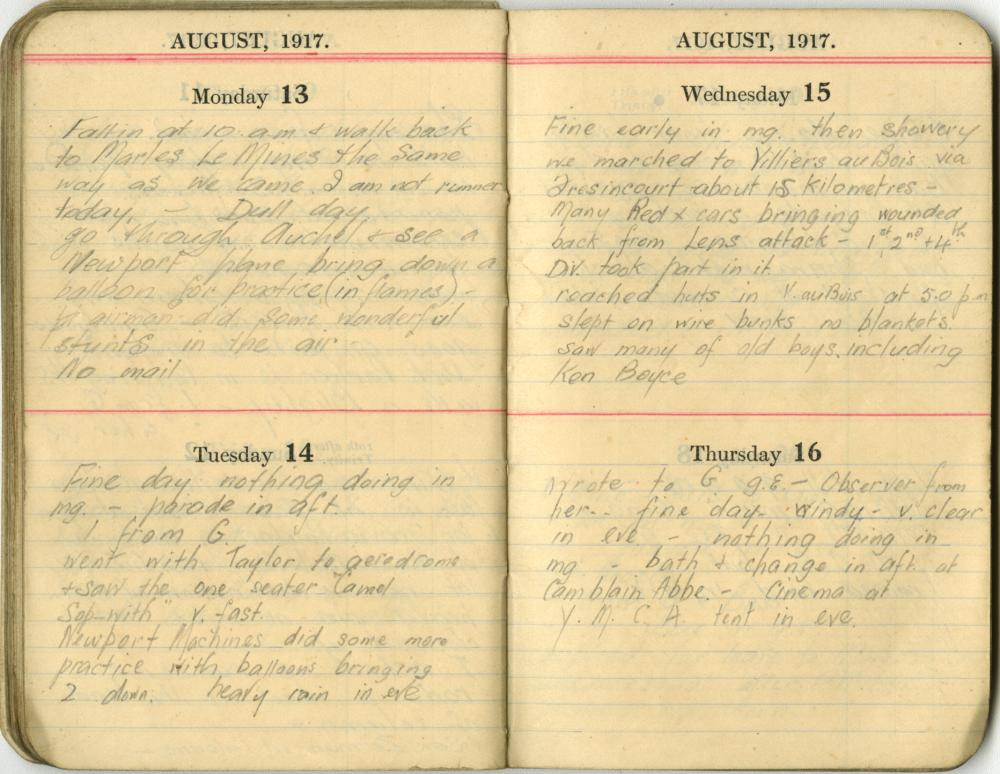 AUGUST, 1917.
Monday 13
Fall in at 10 a.m + walk back
to Marles Le Mines the same
way as we came. I am not runner
today. - Dull day.
go through Auchel + see a
Newport plane bring down a
balloon for practice (in flames) -
airman did some wonderful
stunts in the air
No mail
Tuesday 14
Fine day nothing doing in
mg. - parade in aft.
1 from G.
went with Taylor to aerodrome
+ saw the one seater Camel
Sop-with" v. fast.
Newport Machines did some more
practice with balloons bringing
2 down. heavy rain in eve
AUGUST, 1917.
Wednesday 15
Fine early in mg. then showery
we marched to Villiers au Bois via
Fresincourt about 15 Kilometres -
Many Red x cars bringing wounded
back from Lens attack - 1st 2nd + 4th
Div. took part in it.
reached huts in V. au Bois at 5.0 p.m
slept on wire bunks no blankets.
saw many of old boys. including
Ken Boyce
Thursday 16
wrote to G. g.E. - Observer from
her-. fine day- windy - v. clear
in eve - nothing doing in
mg - bath + change in aft. at
Camblain Abbe. - Cinema at
Y. M. C. A. tent in eve.